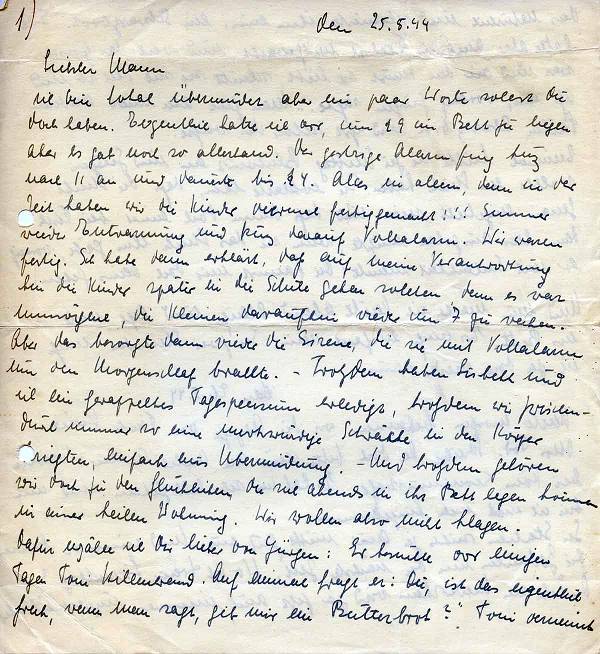 1)
den 25.5.44
Liebster Mann
ich bin total übermüdet aber ein paar Worte sollst Du
doch haben. Eigentlich hatte ich vor, um 9 im Bett zu liegen
aber es gab noch so allerhand. Der gestrige Alarm fing kurz
nach 11 an und dauerte bis 4. Alles in allem, denn in der
Zeit haben wir die Kinder viermal fertiggemacht!!! Immer
wieder Entwarnung und kurz darauf Vollalarm. Wir waren
fertig. Ich habe dann erklärt, daß auf meine Verantwortung
hin die Kinder später in die Schule gehen sollten, denn es war
unmöglich, die Kleinen daraufhin wieder um 7 zu wecken.
Aber das besorgte dann wieder die Sirene, die sie mit Vollalarm
um den Morgenschlaf brachte. - Trotzdem haben Lisbeth und
ich ein Tagespensum erledigt, trotzdem wir zwischen-
durch immer so eine merkwürdige Schwäche in den Körper
kriegten, einfach aus Übermüdung. - Und trotzdem gehören
wir doch zu den Glücklichen, die sich abends in ihr Bett legen können
in einer heilen Wohnung. Wir wollen also nicht klagen.
Dafür erzähle ich Dir lieber von Jürgen: Er besuchte vor einigen
Tagen Toni. Auf einmal fragt er: Du, ist das eigentlich
frech, wenn man sagt, gib mir ein Butterbrot?" Toni verneint